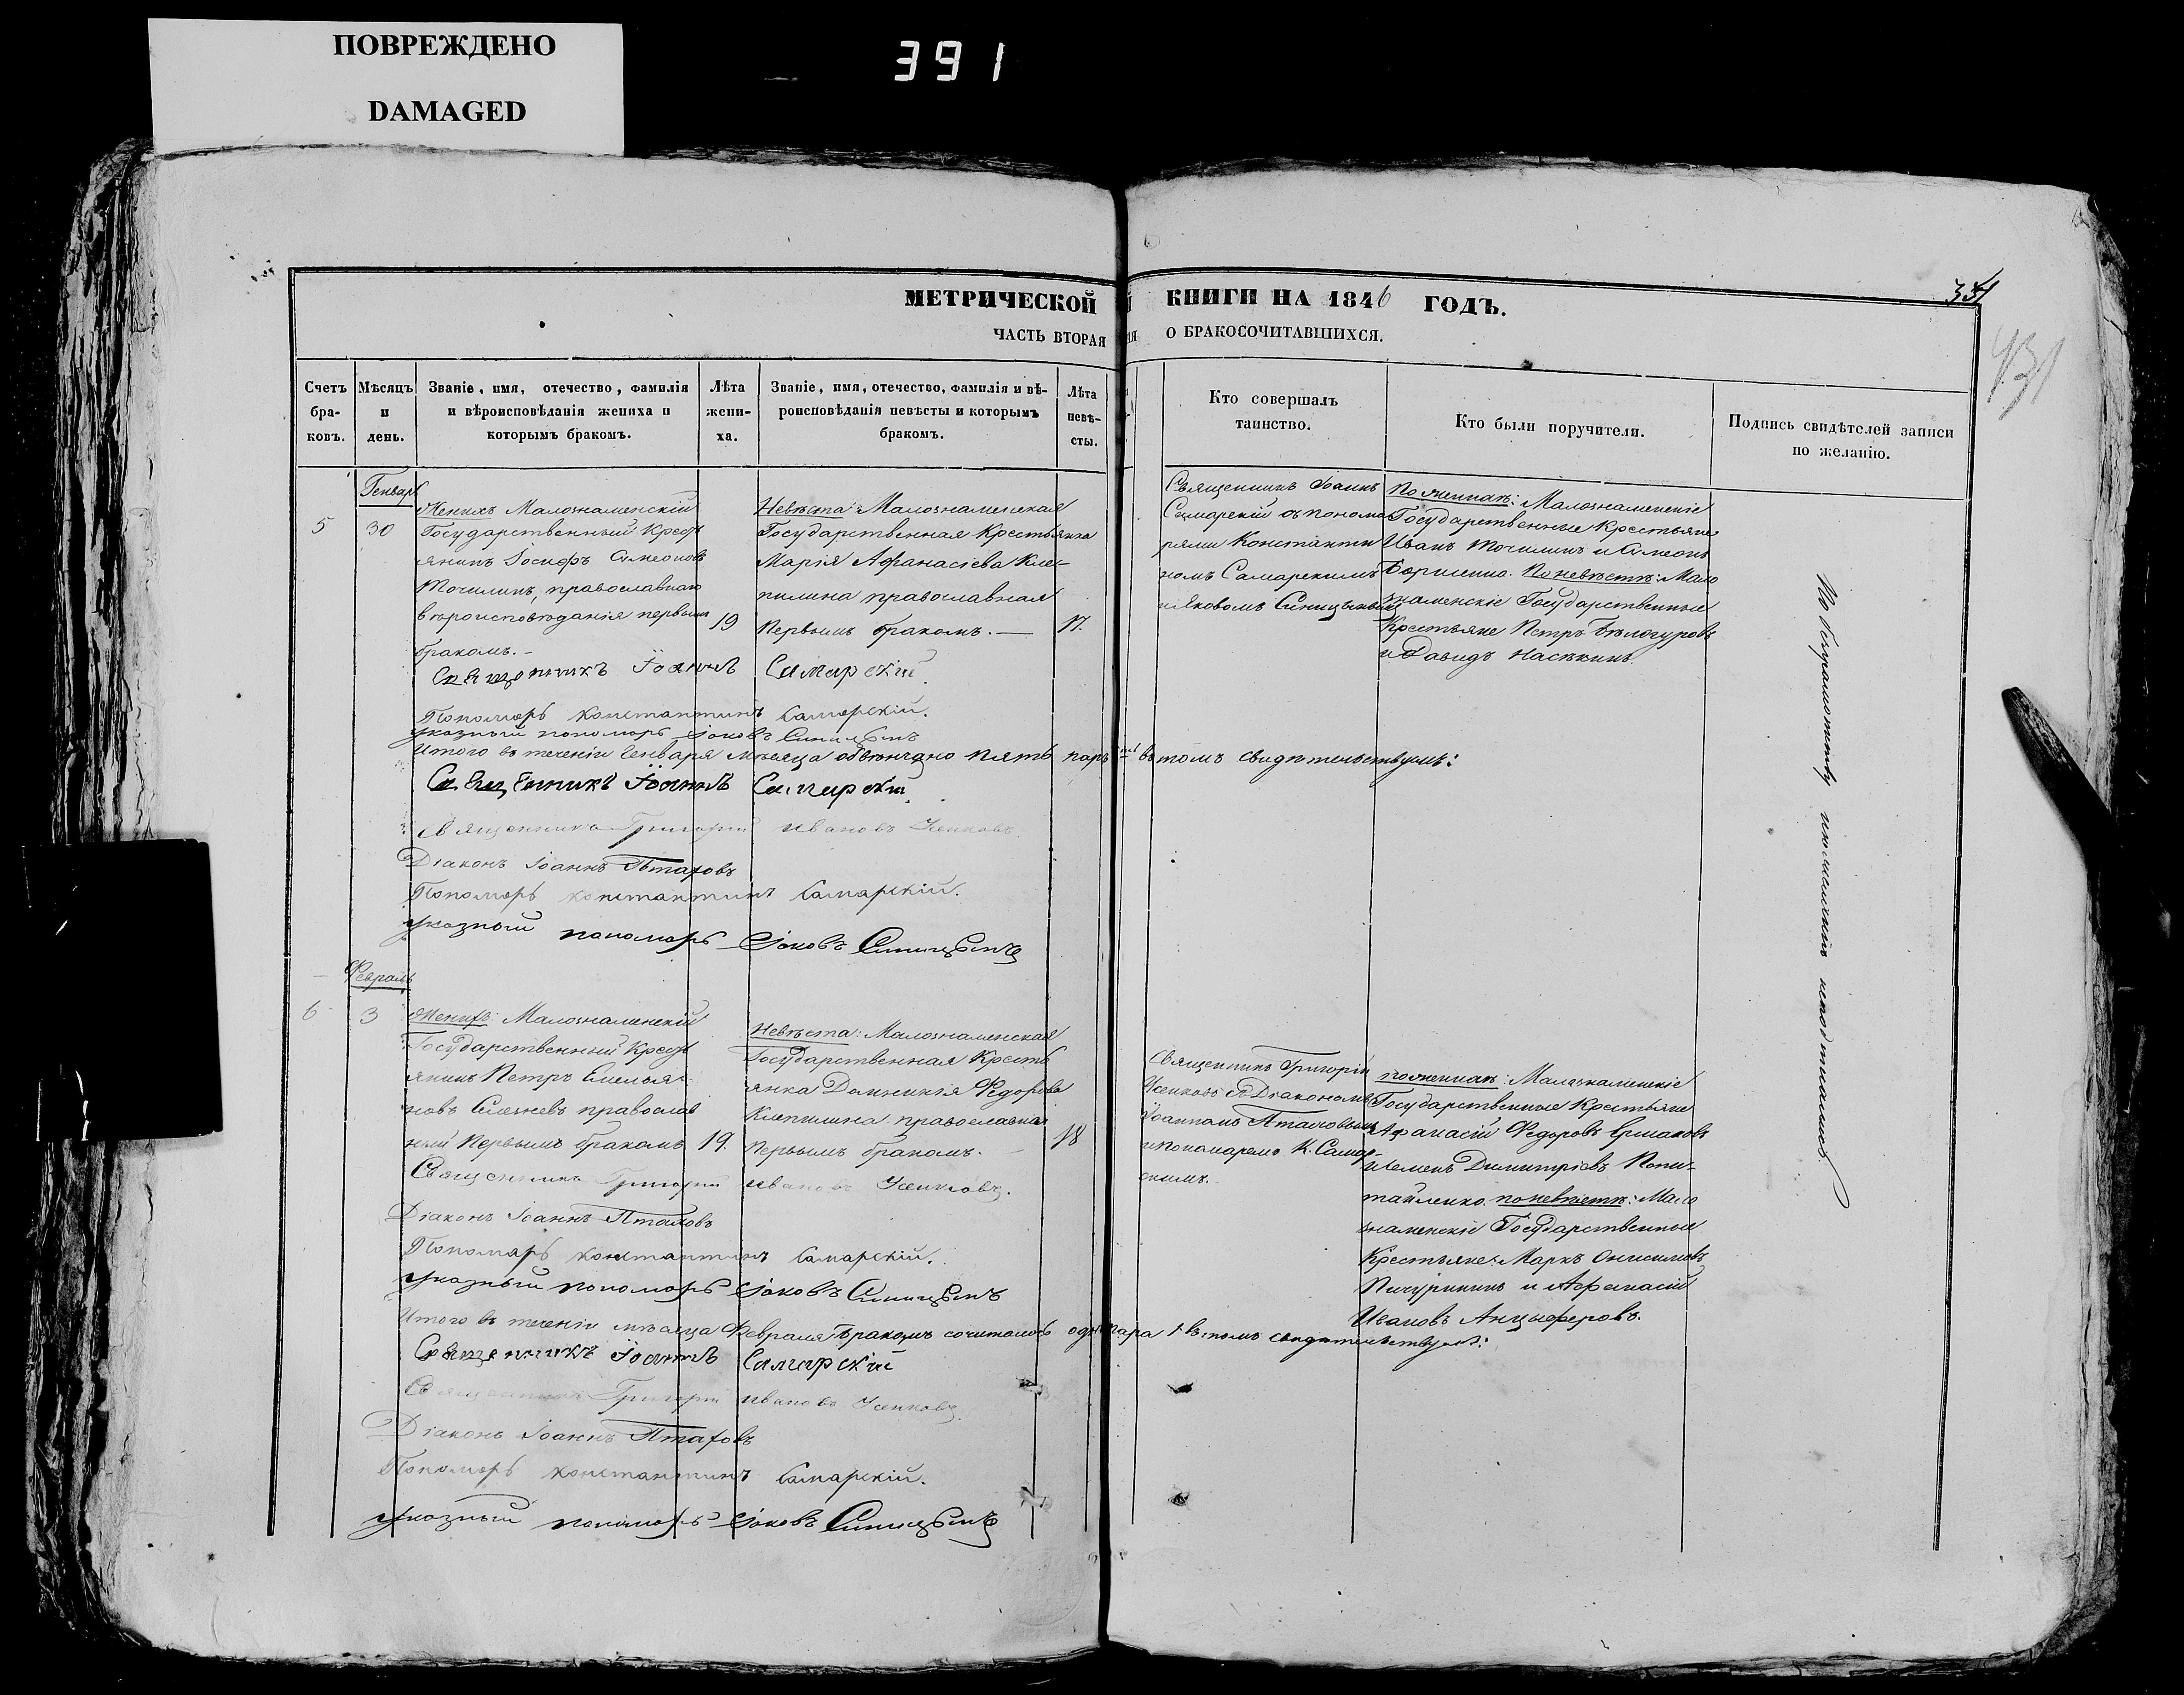 ПОВРЕЖДЕНО
DAMAGED
391
МЕТРИЧЕСКОЙ КНИГИ НА 1846 ГОДЪ.
ЧАСТЬ ВТОРАЯ О БРАКОСОЧИТАВШИХСЯ.
351
431
Счетъ бра-ковъ.
Мѣсяцъ и день.
Званіе, имя, отечество, фамилія
и вѣроисповѣданія жениха и
которымъ бракомъ.
Лѣта жени-ха.
Званіе, имя, отечество, фамилія и вѣ-
роисповѣданія невѣсты и которымъ
бракомъ.
Лѣта невѣ-сты.
Кто совершалъ
таинство.
Кто были поручители.
Подпись свидѣтелей записи
по желанію.
Генварь
5
30
Женихъ Малознаменскій
Государственный Крест
янинъ Іосифъ Симеоновъ
Точилинъ, православнаго
вѣроисповѣданія первымъ
бракомъ.-
19
Невѣста: Малознаменская
Государственная Крестьянка
Марія Аѳанасіева Кле-
пилина православная
Первымъ бракомъ.—
17.
Священникъ Іоаннъ
Самарскій съ понома
рями Константи
номъ Самарскимъ
и Яковомъ Синицынымъ
По женихѣ: Малознаменскіе
Государственные Крестьяне
Иванъ Точилинъ и Симеонъ
Борисенко. По невѣстѣ: Мало
знаменскіе Государственные
Крестьяне Петръ Бѣлогуровъ
и Давидъ Насѣкинъ.
Священникъ Іоаннъ Самарскій
Пономарь Константинъ Самарскій.
Указный пономарь Іаковъ Синицынъ
Итого въ теченіи Генваря мѣсяца обвѣнчано пять паръ въ томъ свидѣтельствуемъ:
Священникъ Іоаннъ Самарскій.
Священникъ Григорій Ивановъ Усенковъ
Діаконъ Іоаннъ Птаховъ
Пономарь Константинъ Самарскій.
Указный пономарь Іаковъ Синицынъ
Февраль
6
3
Женихъ: Малознаменскій
Государственный Крест
янинъ Петръ Емелья-
новъ Слезневъ православ
ный Первымъ бракомъ
19.
Невѣста: Малознаменская
Государственная Кресть
янка Домникія Федорова
Клепилина православная
Первымъ бракомъ.
18
Священникъ Григорій
Усенковъ съ Діакономъ
Іоанномъ Птаховымъ
и пономаремъ К. Самар-
скимъ.
По женихѣ: Малознаменскіе
Государственные Крестьяне
Аѳанасій Федоровъ Ермаковъ
и Семенъ Димитріевъ Попи-
тайленко. по невѣстѣ: Мало
знаменскіе Государственные
Крестьяне: Маркъ Онисимовъ
Пичуринъ и Аѳанасій
Ивановъ Анцыферовъ.
Священникъ Григорій Ивановъ Усенковъ.
Діаконъ Іоаннъ Птаховъ
Пономарь Константинъ Самарскій.
Указный пономарь Іаковъ Синицынъ
Итого въ теченіи мѣсяца Февраля бракомъ сочиталось одна пара 1 въ томъ свидѣтельствуемъ:
Священникъ Іоаннъ Самарскій
Священникъ Григорій Ивановъ Усенковъ.
Діаконъ Іоаннъ Птаховъ
Пономарь Константинъ Самарскій.
Указный пономарь Іаковъ Синицынъ
По безграмотству